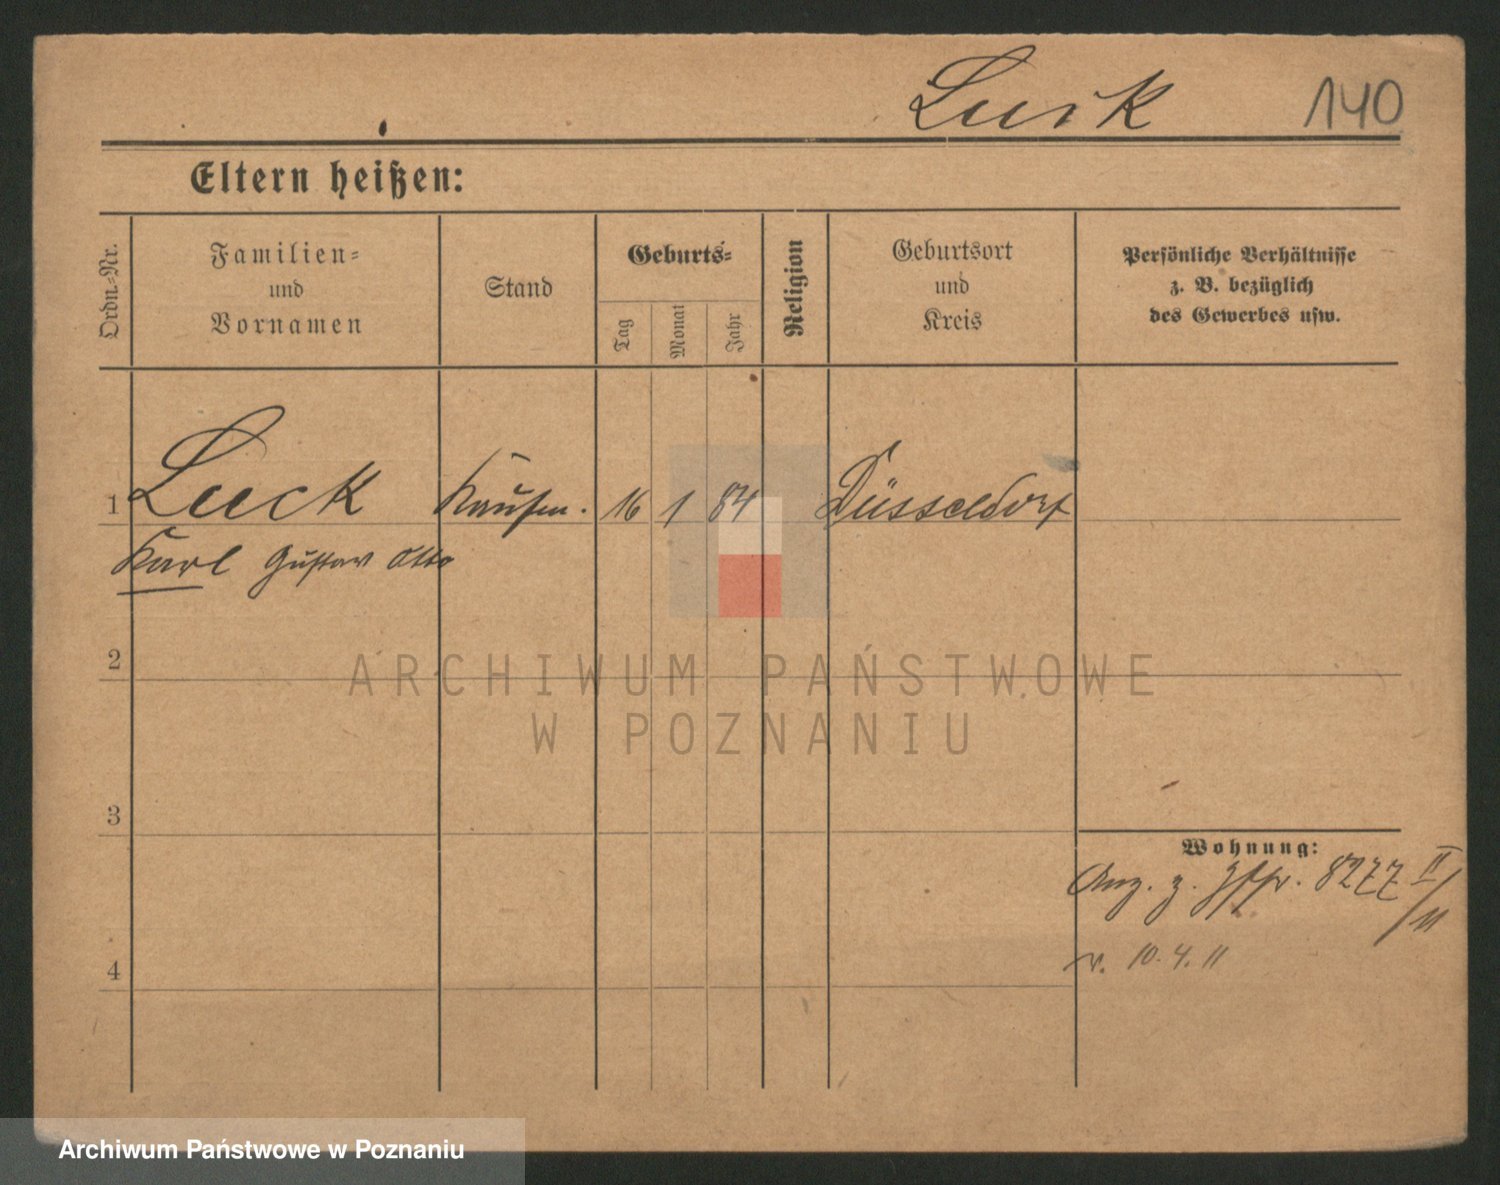 Luck 140
Eltern heißen:
Ordn.=Nr.
Familien=
und
Vornamen
Stand
Geburts=
Tag
Monat
Jahr
Religion
Geburtsort
und
Kreis
Persönliche Verhältnisse
z. B. bezüglich
des Gewerbes usw.
1 Luck Kaufm. 16 1 84 Düsseldorf
Karl Gustav Otto
2
ARCHIWUM PAŃSTWOWE
W POZNANIU
3
Wohnung:
Anz. z. 8277 II/11
4
v. 10. 4. 11
Archiwum Państwowe w Poznaniu